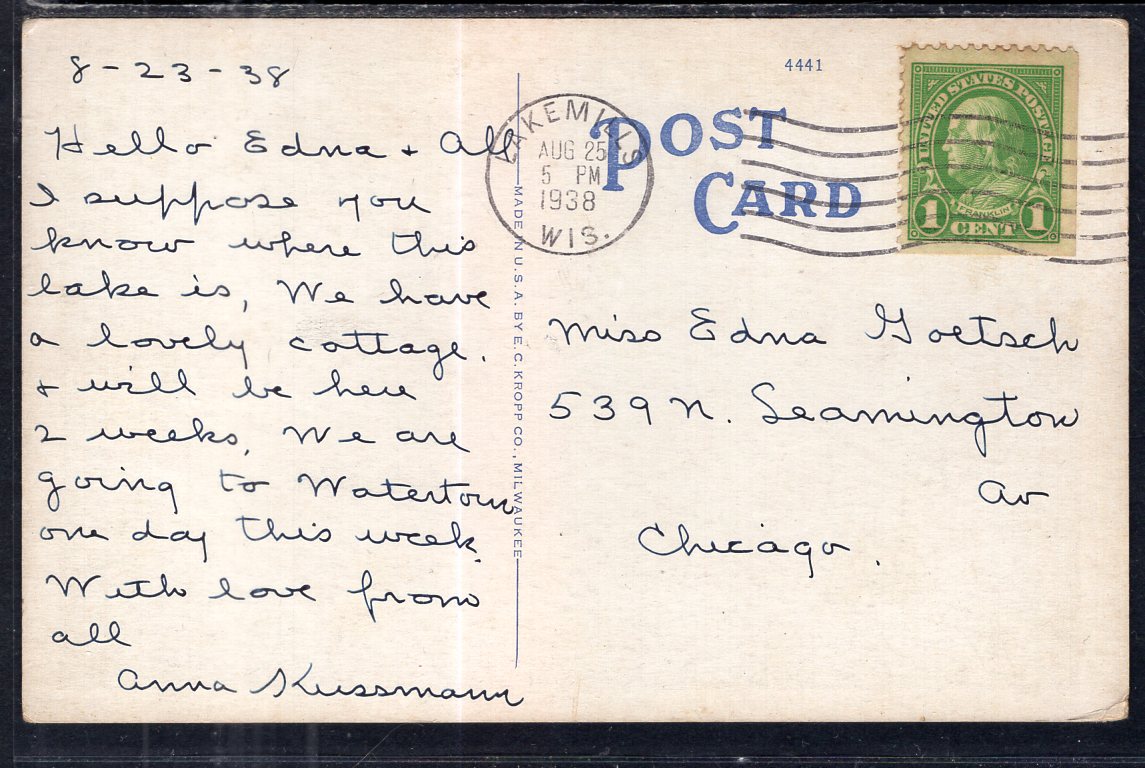 8-23-38
Hello Edna + All
I suppose you
know where this
lake is, We have
a lovely cottage.
+ will be here
2 weeks, We are
going to Watertown
one day this week.
With love from
all
Anna Kussmann
MADE IN U.S.A. BY E.C. KROPP CO., MILWAUKEE
4441
POST
CARD
LAKE MILLS
AUG 25
5 PM
1938
WIS.
UNITED STATES POSTAGE
FRANKLIN
1 CENT 1
Miss Edna Goetsch
539 N. Leamington
Av
Chicago.